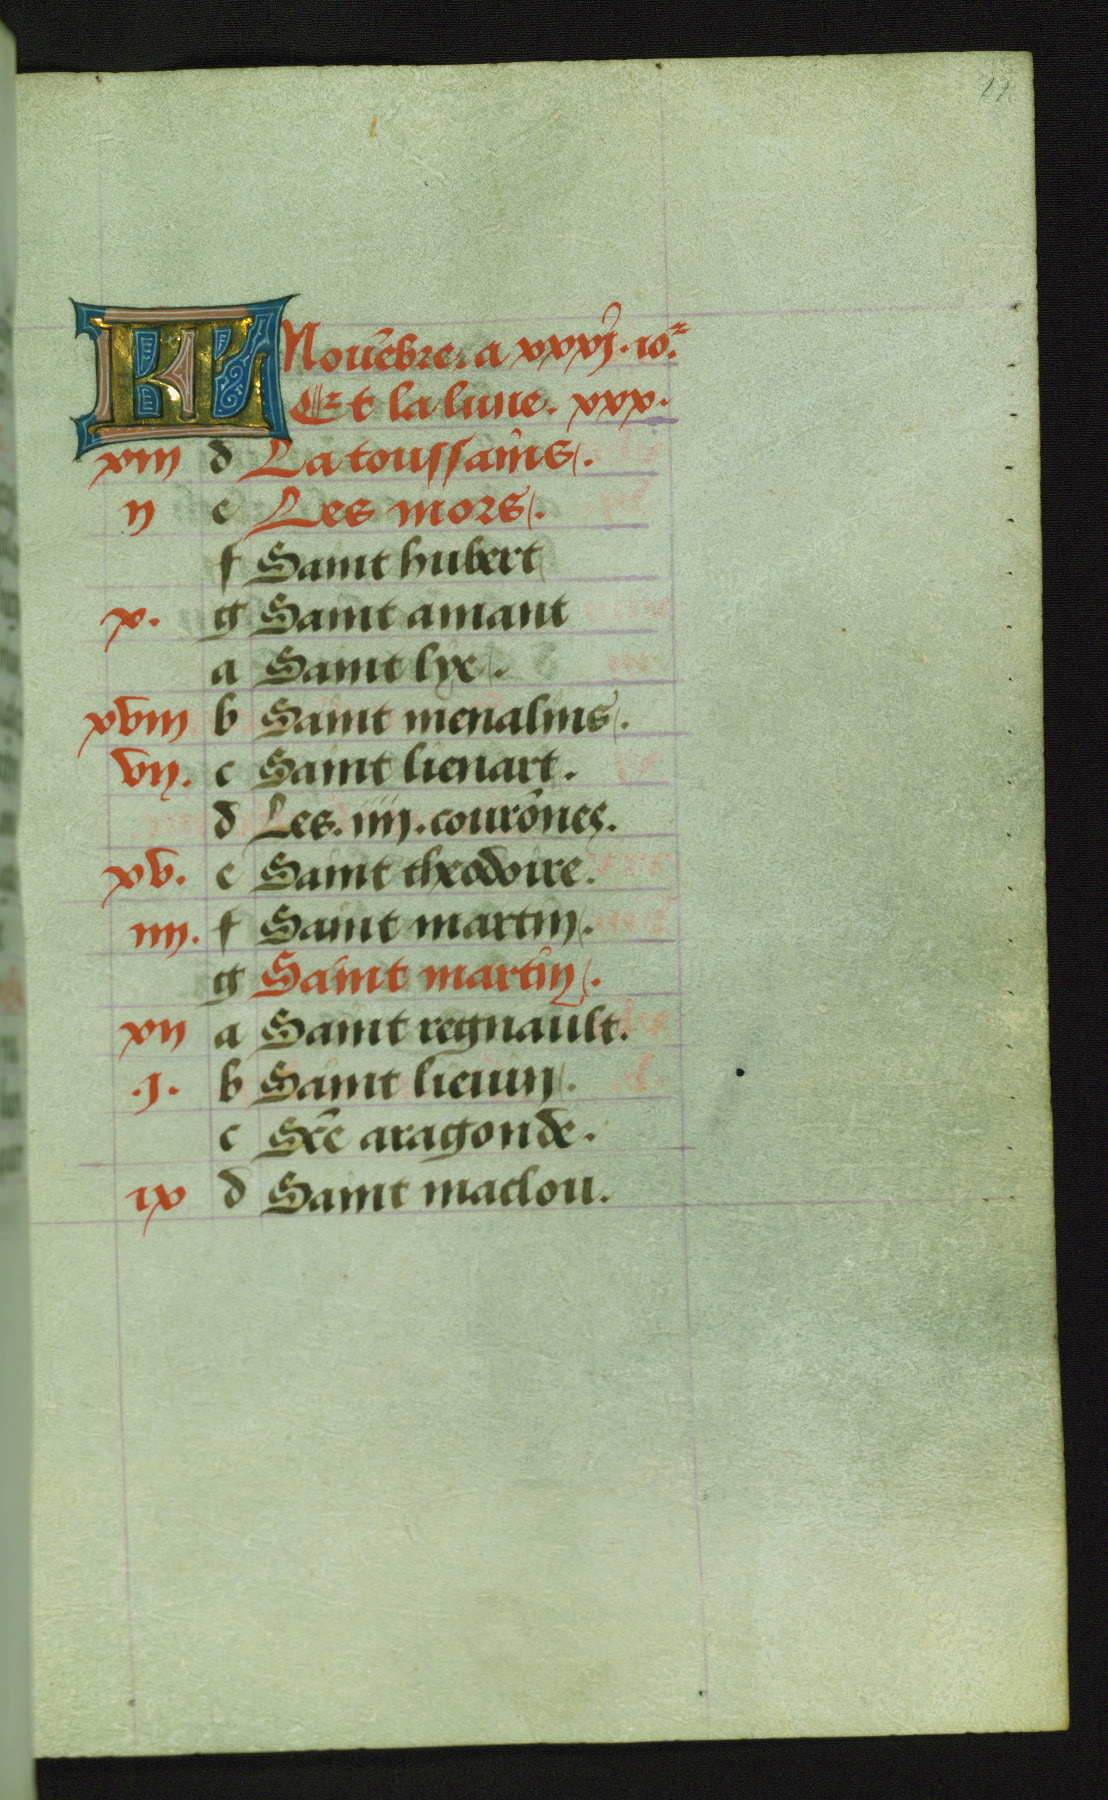 KL Nouēbre. a xxxj. io^r.
Et la lune. xxx.
xiii d La toussains.
ii e Les mors.
f Saint hubert
x. g Saint amant
a Saint lye.
xviii b Saint menalins.
vii. c Saint lienart.
d Les. iiii. courōnes.
xv. e Saint theodoire.
iiii. f Saint martin.
g Saint martin.
xii a Saint regnault.
.j. b Saint lieuin.
c Ste aragonde.
ix d Saint maclou.